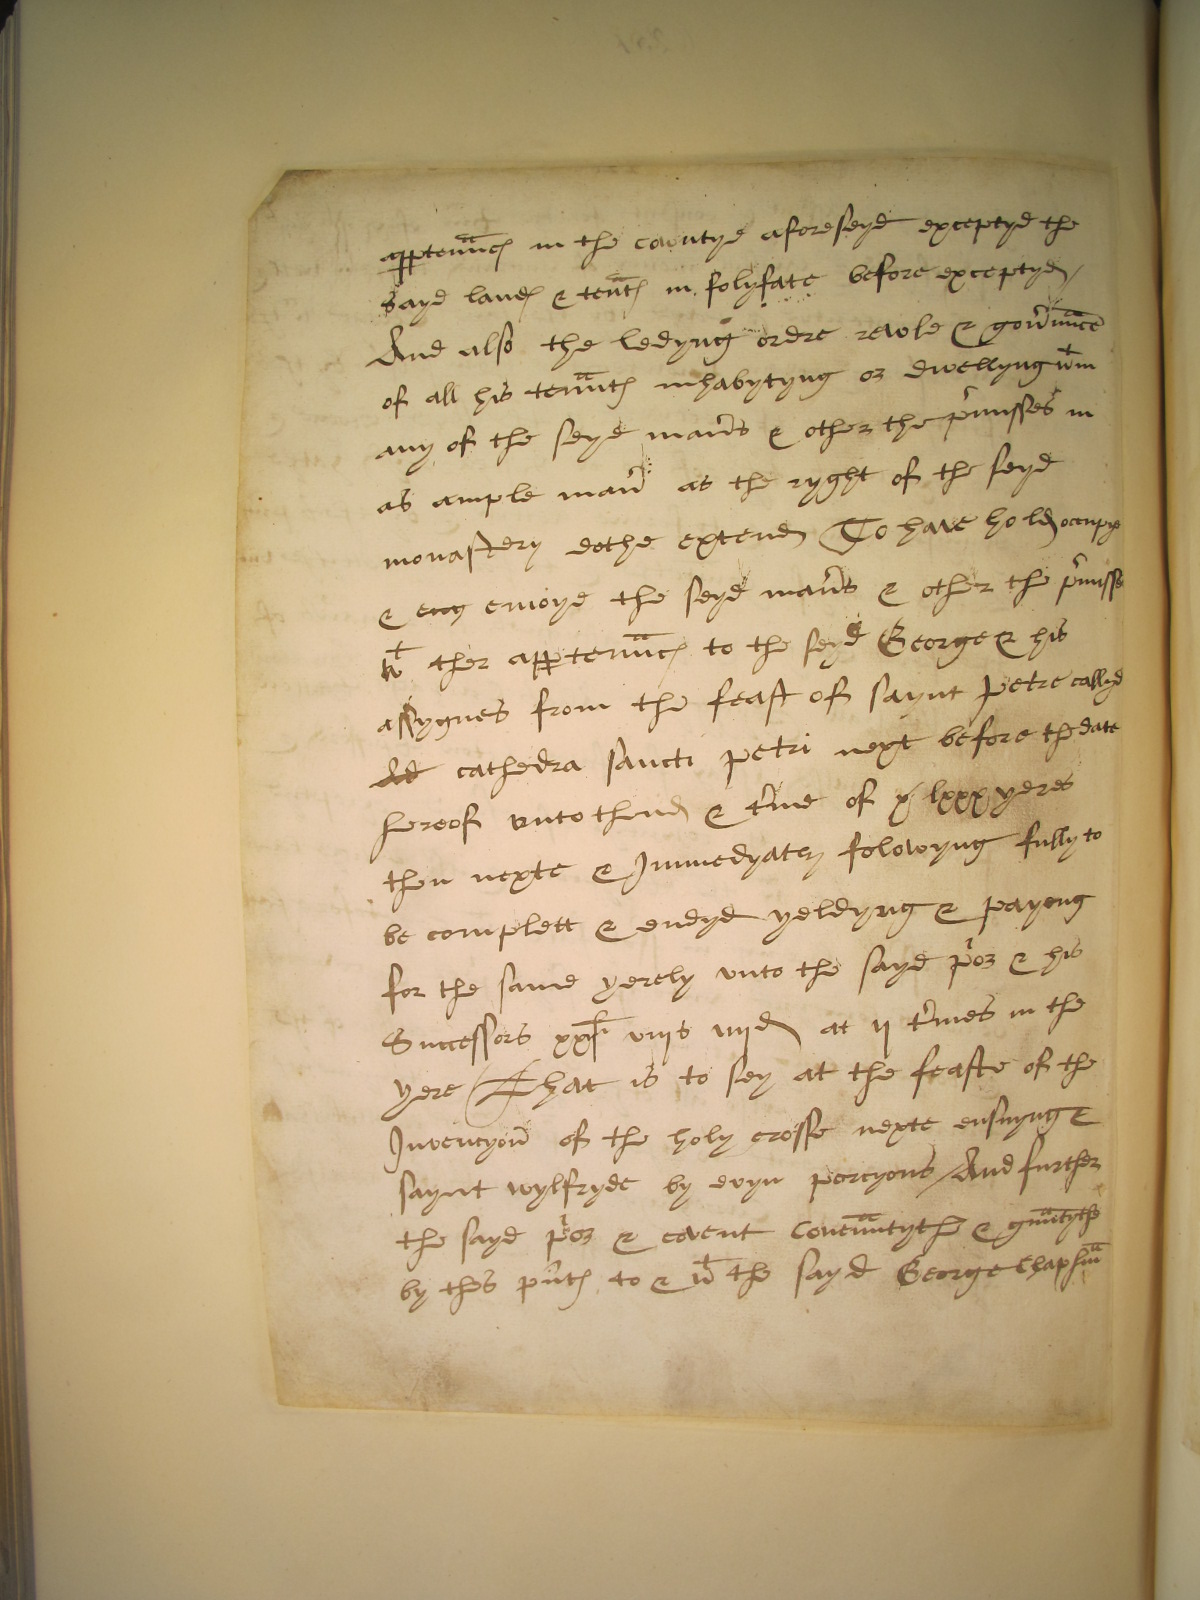 apptennᵃncꝭ in the cowntye aforeseyd exceptyd the
sayd landꝭ & tentꝭ in folyfate before exceptyd /
And also the ledyng ordre rewle & gov'nᵃnce
of all his tenᵃntꝭ inhabytyng or dwellyng wᵗin
any of the seyd man's & other the p'misses in
as ample man' as the ryght of the seyd
monastery dothe extend To have hold occupye
& enioye the seyd man's & other the p'misses
wᵗ ther apptennᵃncꝭ to the seyd George & his
assygnes from the feast of saynt petre callyd
Ad cathedra sancti petri next before the date
hereof unto thend & t'me of lxxx yeres
then nexte & Immedyatly folowyng fully to
be complett & endyd yeldyng & payeng
for the same yerely unto the sayd p'or & his
Successors xxˡⁱ viijs iiijd at ij t'mes in the
yere / That is to sey at the feaste of the
Invencyon of the holy crosse nexte ensuyng &
saynt wylfryde by evyn porcyons / And further
the sayd p'or & covent covenᵃntythe & grᵃntythe
by thes p'ntꝭ to & wᵗ the sayd George Chapmᵃn